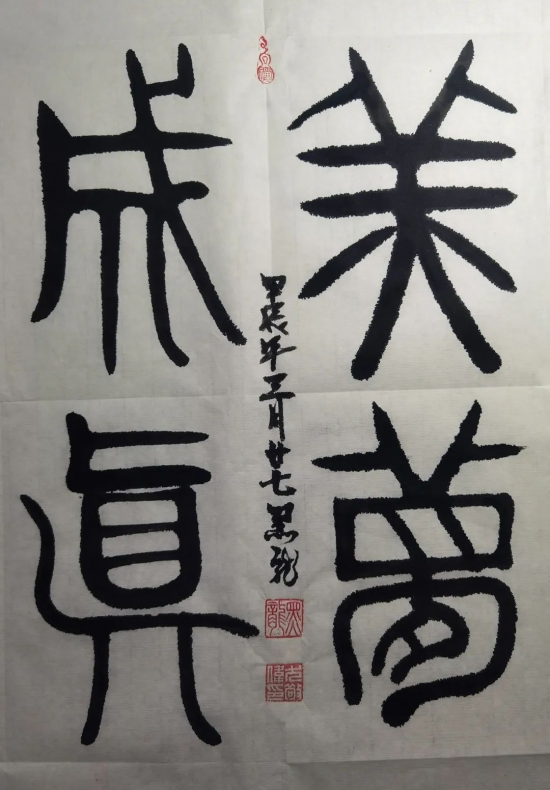 美夢
成真
甲辰年三月廿七墨龍